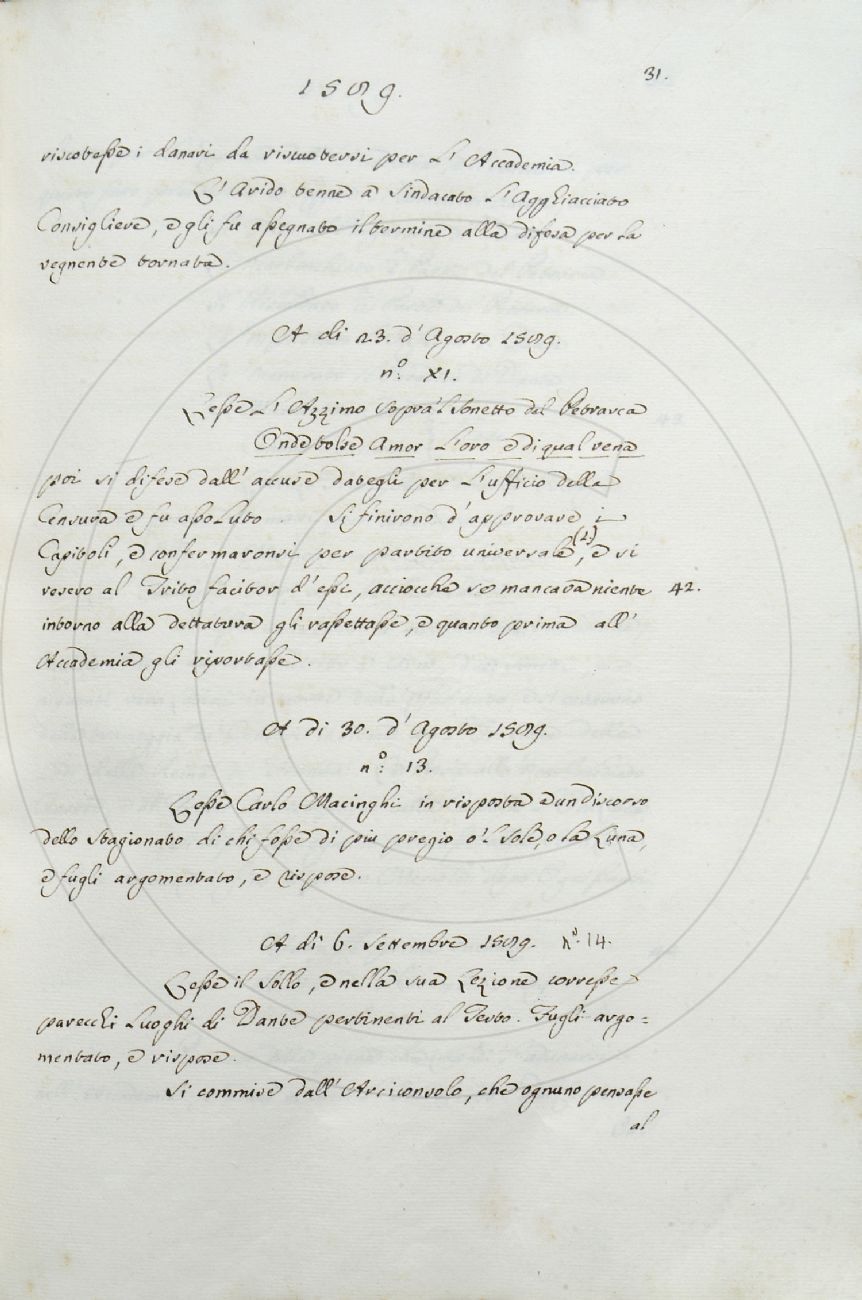 31.
1589.
riscotesse i danari da riscuotersi per l'Accademia.
L'Arido tenne a sindacato l'Agghiacciato
Consigliere, e gli fu assegnato il termine alla difesa per la
vegnente tornata.
A dì 23. d'Agosto 1589.
n.º XI.
Lesse l'Azzimo sopra 'l Sonetto del Petrarca
Onde tolse Amor l'oro e di qual vena
poi si difese dall'accuse dategli per l'uffìcio della
Censura e fu assoluto si finirono d'approvare i
Capitoli, e confermaronsi per partito universale (1), e si
resero al Trito facitor d'essi, acciocchè se mancava niente 42.
intorno alla dettatura gli rassettasse, e quanto prima all'
Accademia gli riportasse.
A dì 30. d'Agosto 1589.
n.º 13.
Lesse Carlo Macinghi in risposta a un discorso
dello Stagionato di chi fosse di più pregio o 'l Sole, o la Luna,
e fugli argomentato, e rispose.
A dì 6. Settembre 1589. n.º 14.
Lesse il Sollo, e nella sua Lezione corresse
parecchi Luoghi di Dante pertinenti al Testo. Fugli argo=
mentato, e rispose.
Si commise dall'Arciconsolo, che ognuno pensasse
al